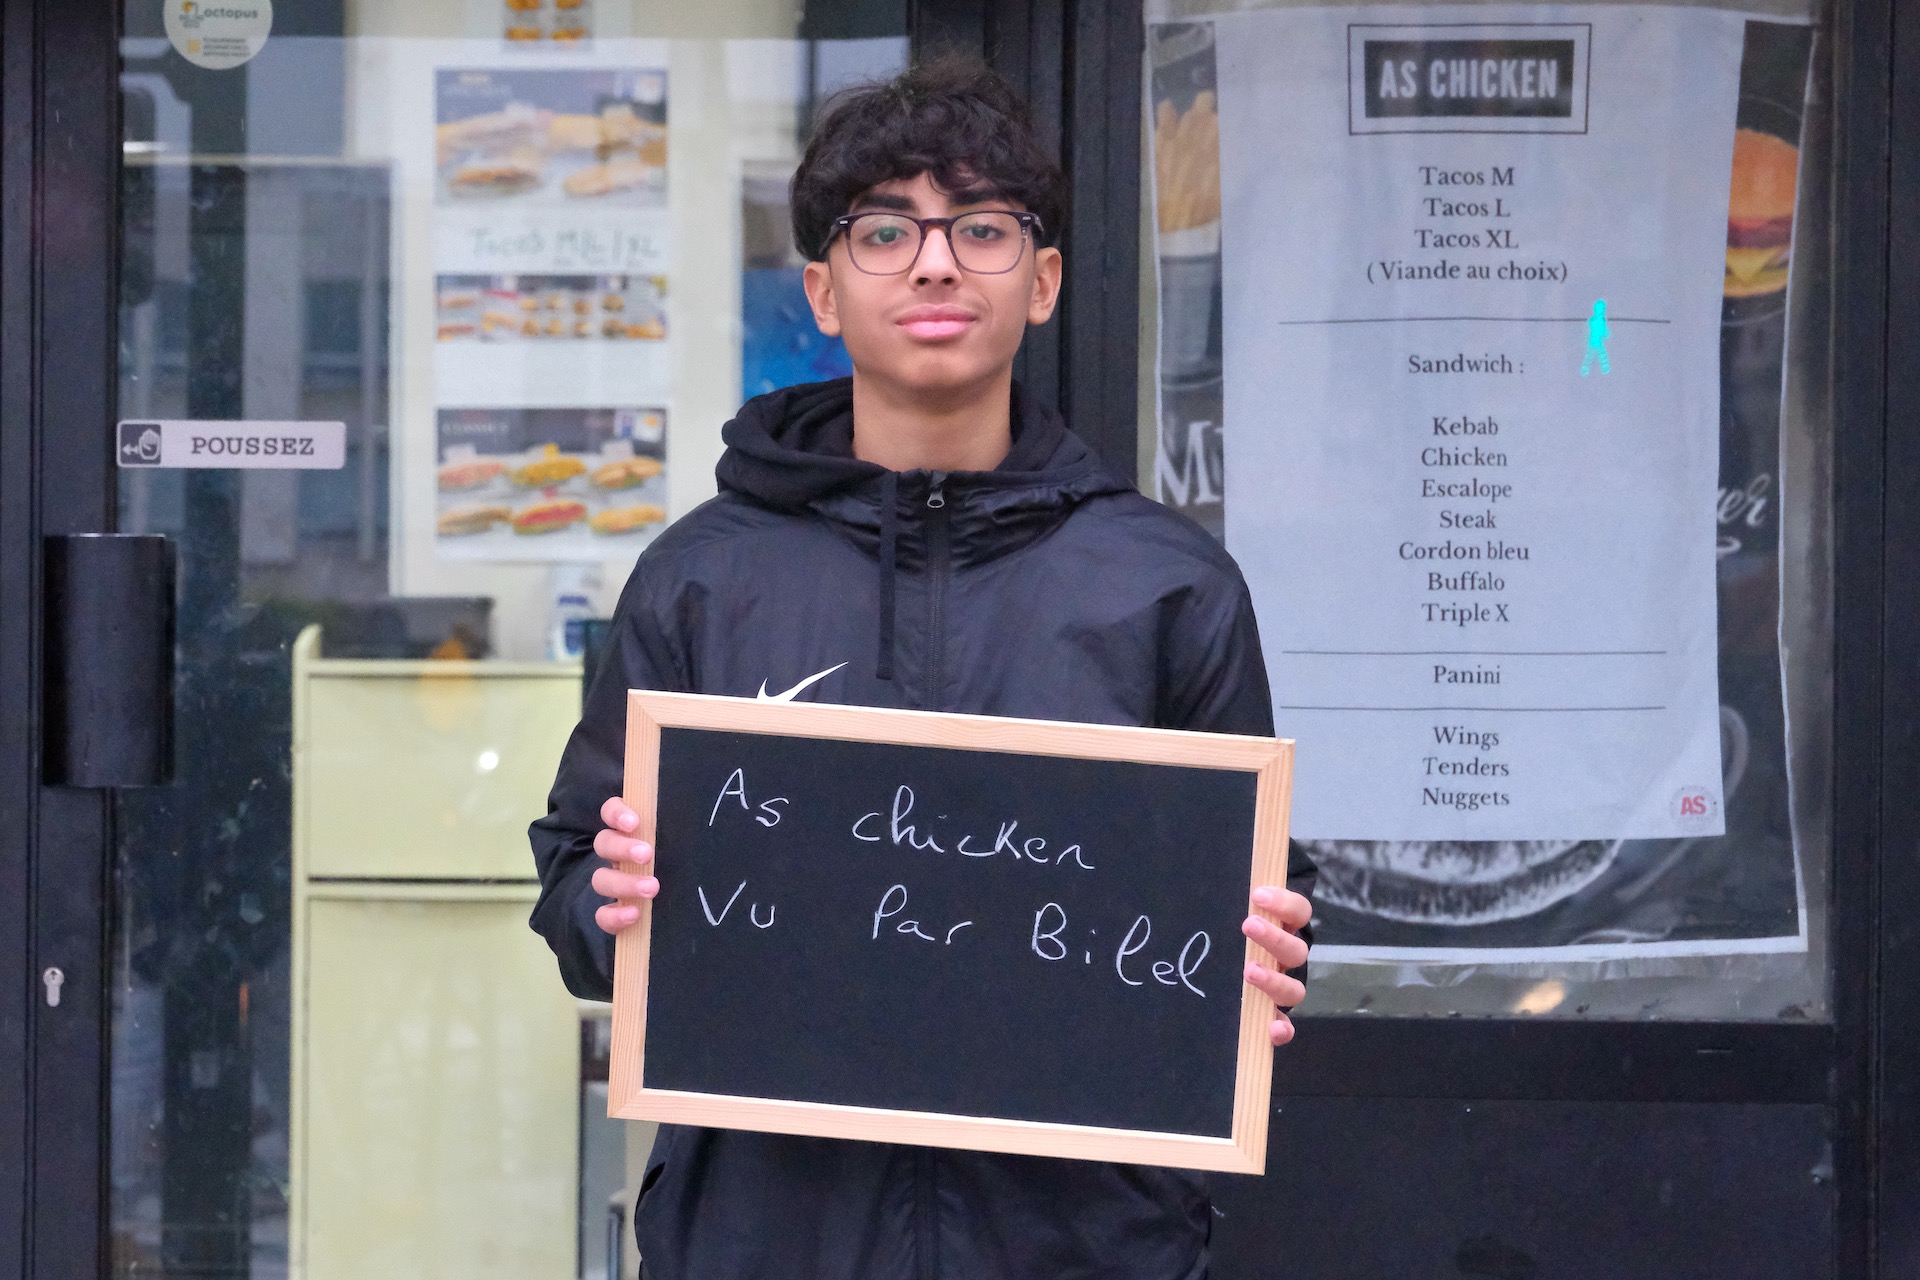 octopus
Tacos M/L/XL
POUSSEZ
AS CHICKEN
Tacos M
Tacos L
Tacos XL
( Viande au choix)
Sandwich :
Kebab
Chicken
Escalope
Steak
Cordon bleu
Buffalo
Triple X
Panini
Wings
Tenders
Nuggets
AS
As chicken
Vu Par Bilel